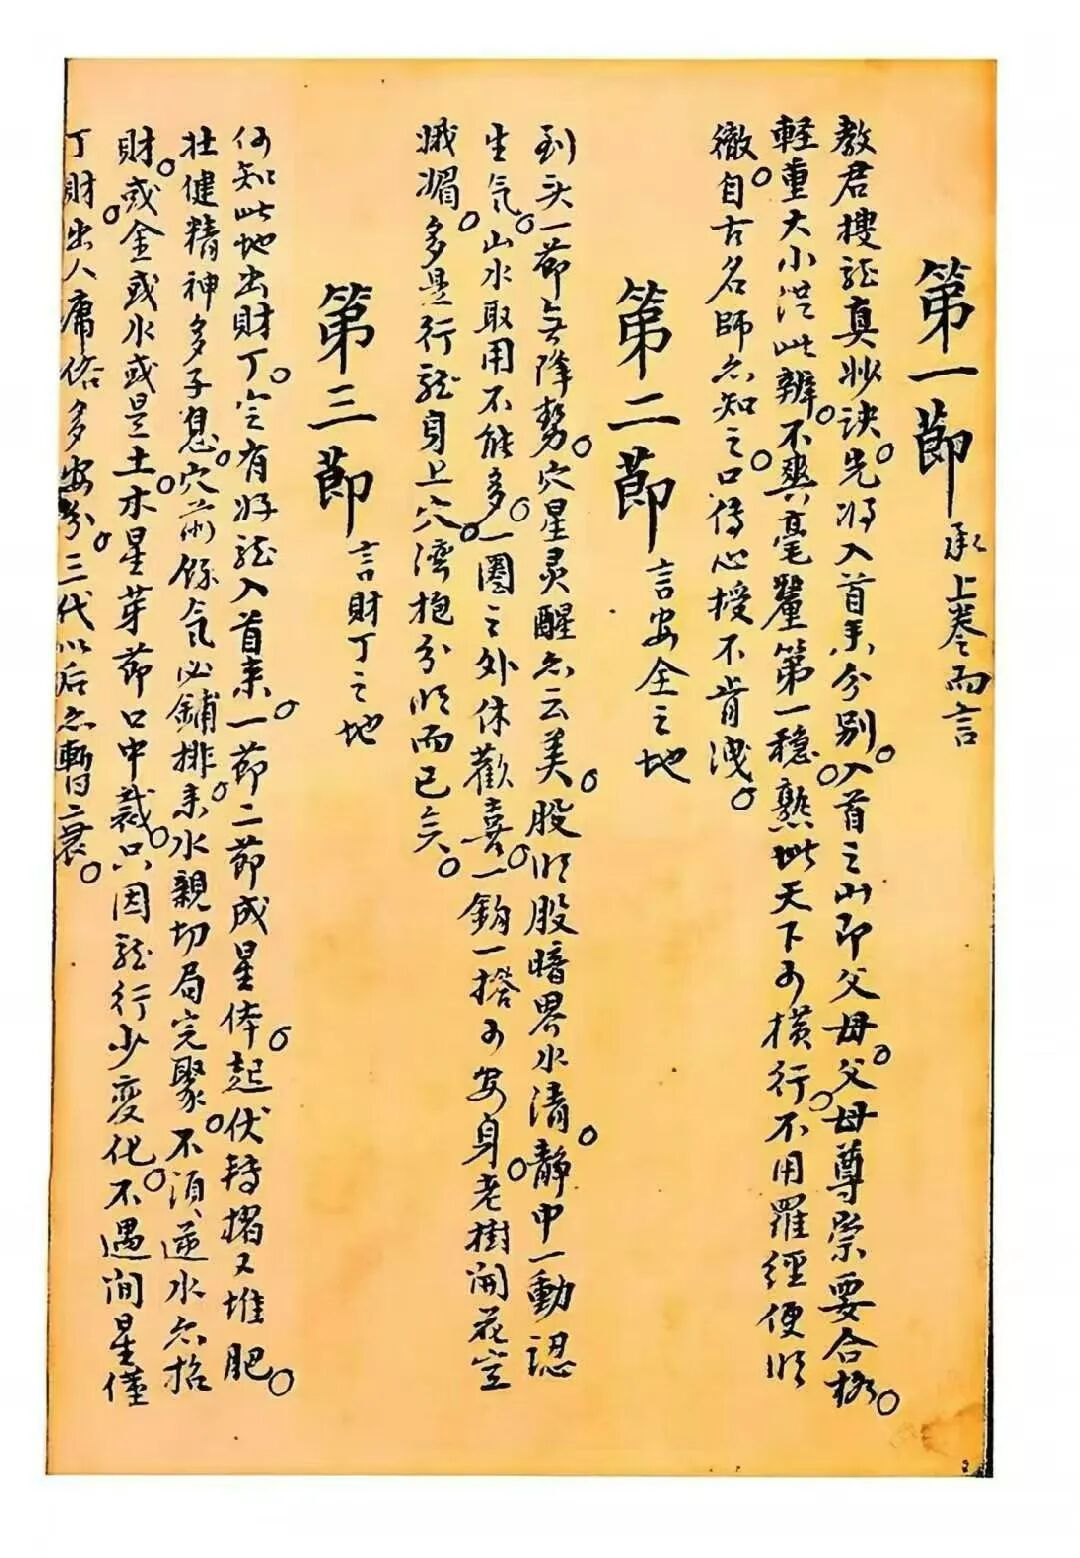 第一節 承上卷而言
教君搜龍真妙訣。先將入首来分别。入首之山即父母。父母尊崇要合格。
軽重大小從此辨。不爽毫釐第一穩。熟此天下可横行。不用羅經便順
徹。自古名師亦知之。口傳心授不肯洩。
第二節 言安全之地
到头一節無降勢。穴星灵醒亦云美。股順股暗界水清。静中一動認
生气。山水取用不能多。一圈之外休歡喜。一鈎一搭可安身。老樹開花豈
娥媚。多是行龍身上穴。湾抱分順而已矣。
第三節 言財丁之地
何知此地出財丁。定有好龍入首来。一節二節成星体。起伏轉摺又堆肥。
壮健精神多子息。穴前餘氣必鋪排。来水親切局完聚。不須逆水亦招
財。或金或水或是土。木星芽節口中裁。只因龍行少变化。不遇间星僅
丁財。出人庸俗多安分。三代以后亦暫衰。